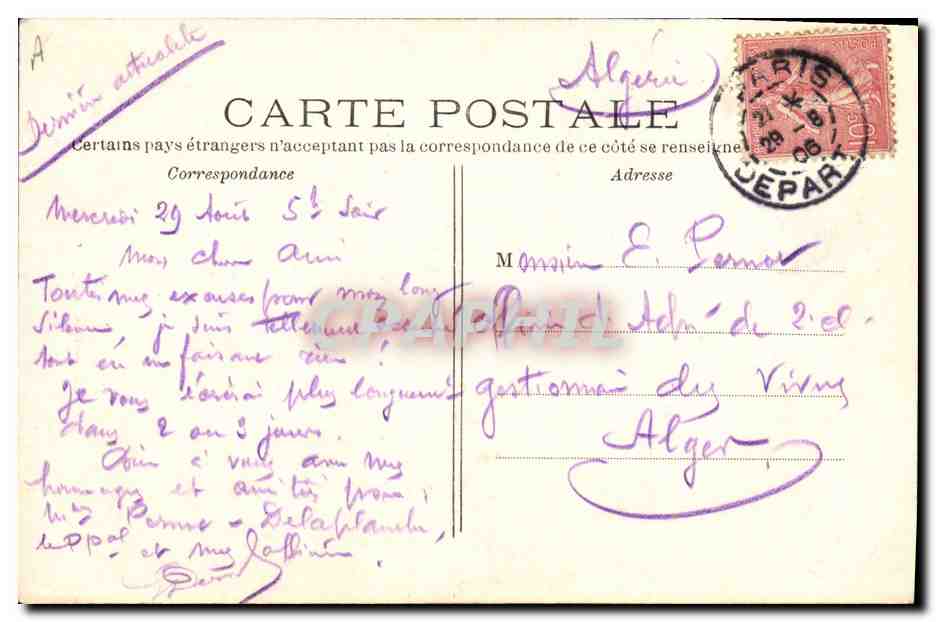 A
Dernière actualité
Algérie
CARTE POSTALE
Certains pays étrangers n'acceptant pas la correspondance de ce côté se renseigne
Correspondance
Mercredi 29 Août 5h Soir
Mon cher Ami
Toutes mes excuses pour mon long
silence, je suis tellement
tout en ne faisant rien!
Je vous écrirai plus longuement
dans 2 ou 3 jours.
à vous avec mes
hommages et amitiés pour
Mmes Pernor - Delaplanche,
le Ppal et mes
CPAPHIL
PARIS
21 * 8
29 - 06
DEPART
POSTES
10
Adresse
M onsieur E. Pernor
Officier d'Admon de 2e cl.
gestionnaire des Vivres
Alger